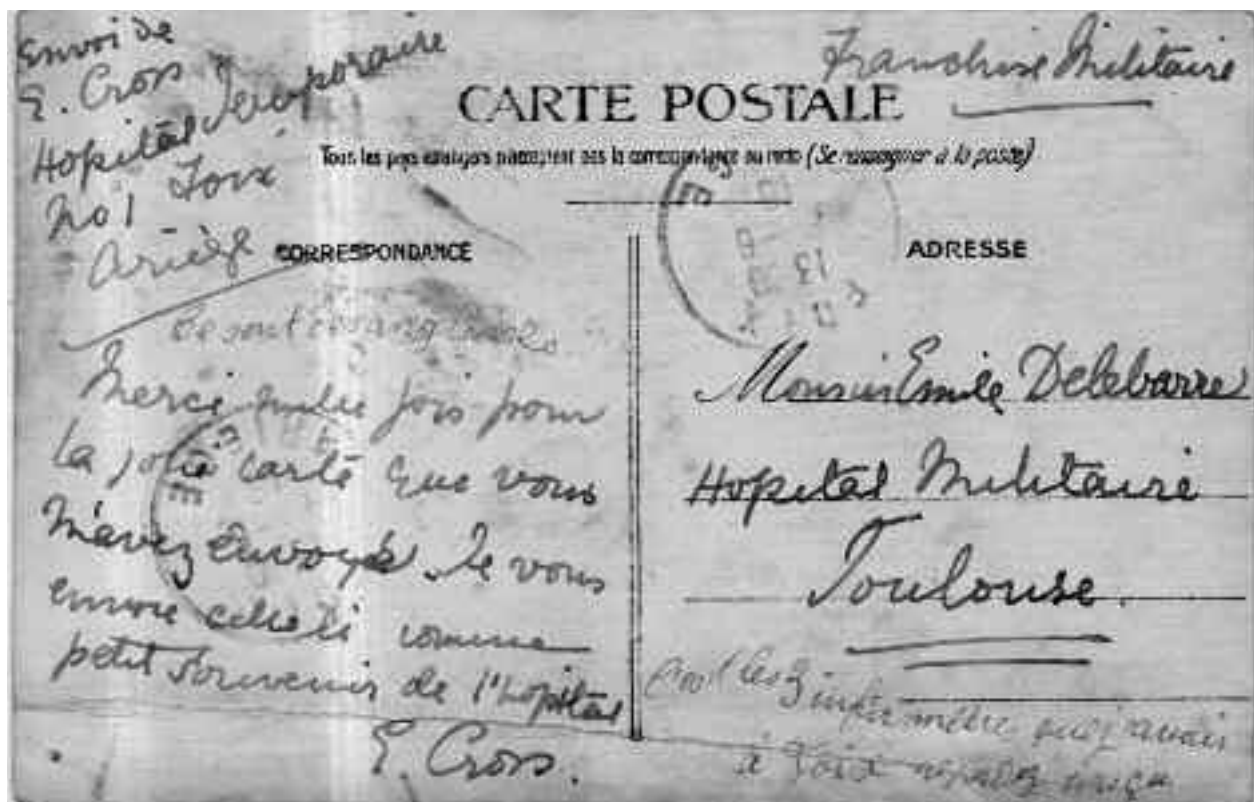 Envoi de
E. Cros
Hopital Temporaire
No 1 Foix
Ariège
Franchise Militaire
CARTE POSTALE
Tous les pays étrangers n'acceptent pas la correspondance au recto (Se renseigner à la poste)
CORRESPONDANCE
ADRESSE
Ce sont
Merci mille fois pour
la jolie carte que vous
m'avez envoyé. Je vous
envoie celle ci comme
petit souvenir de l'hopital
E. Cros.
Monsieur Emile Delebarre
Hopital Militaire
Toulouse.
les 3 que j'avais
à Foix